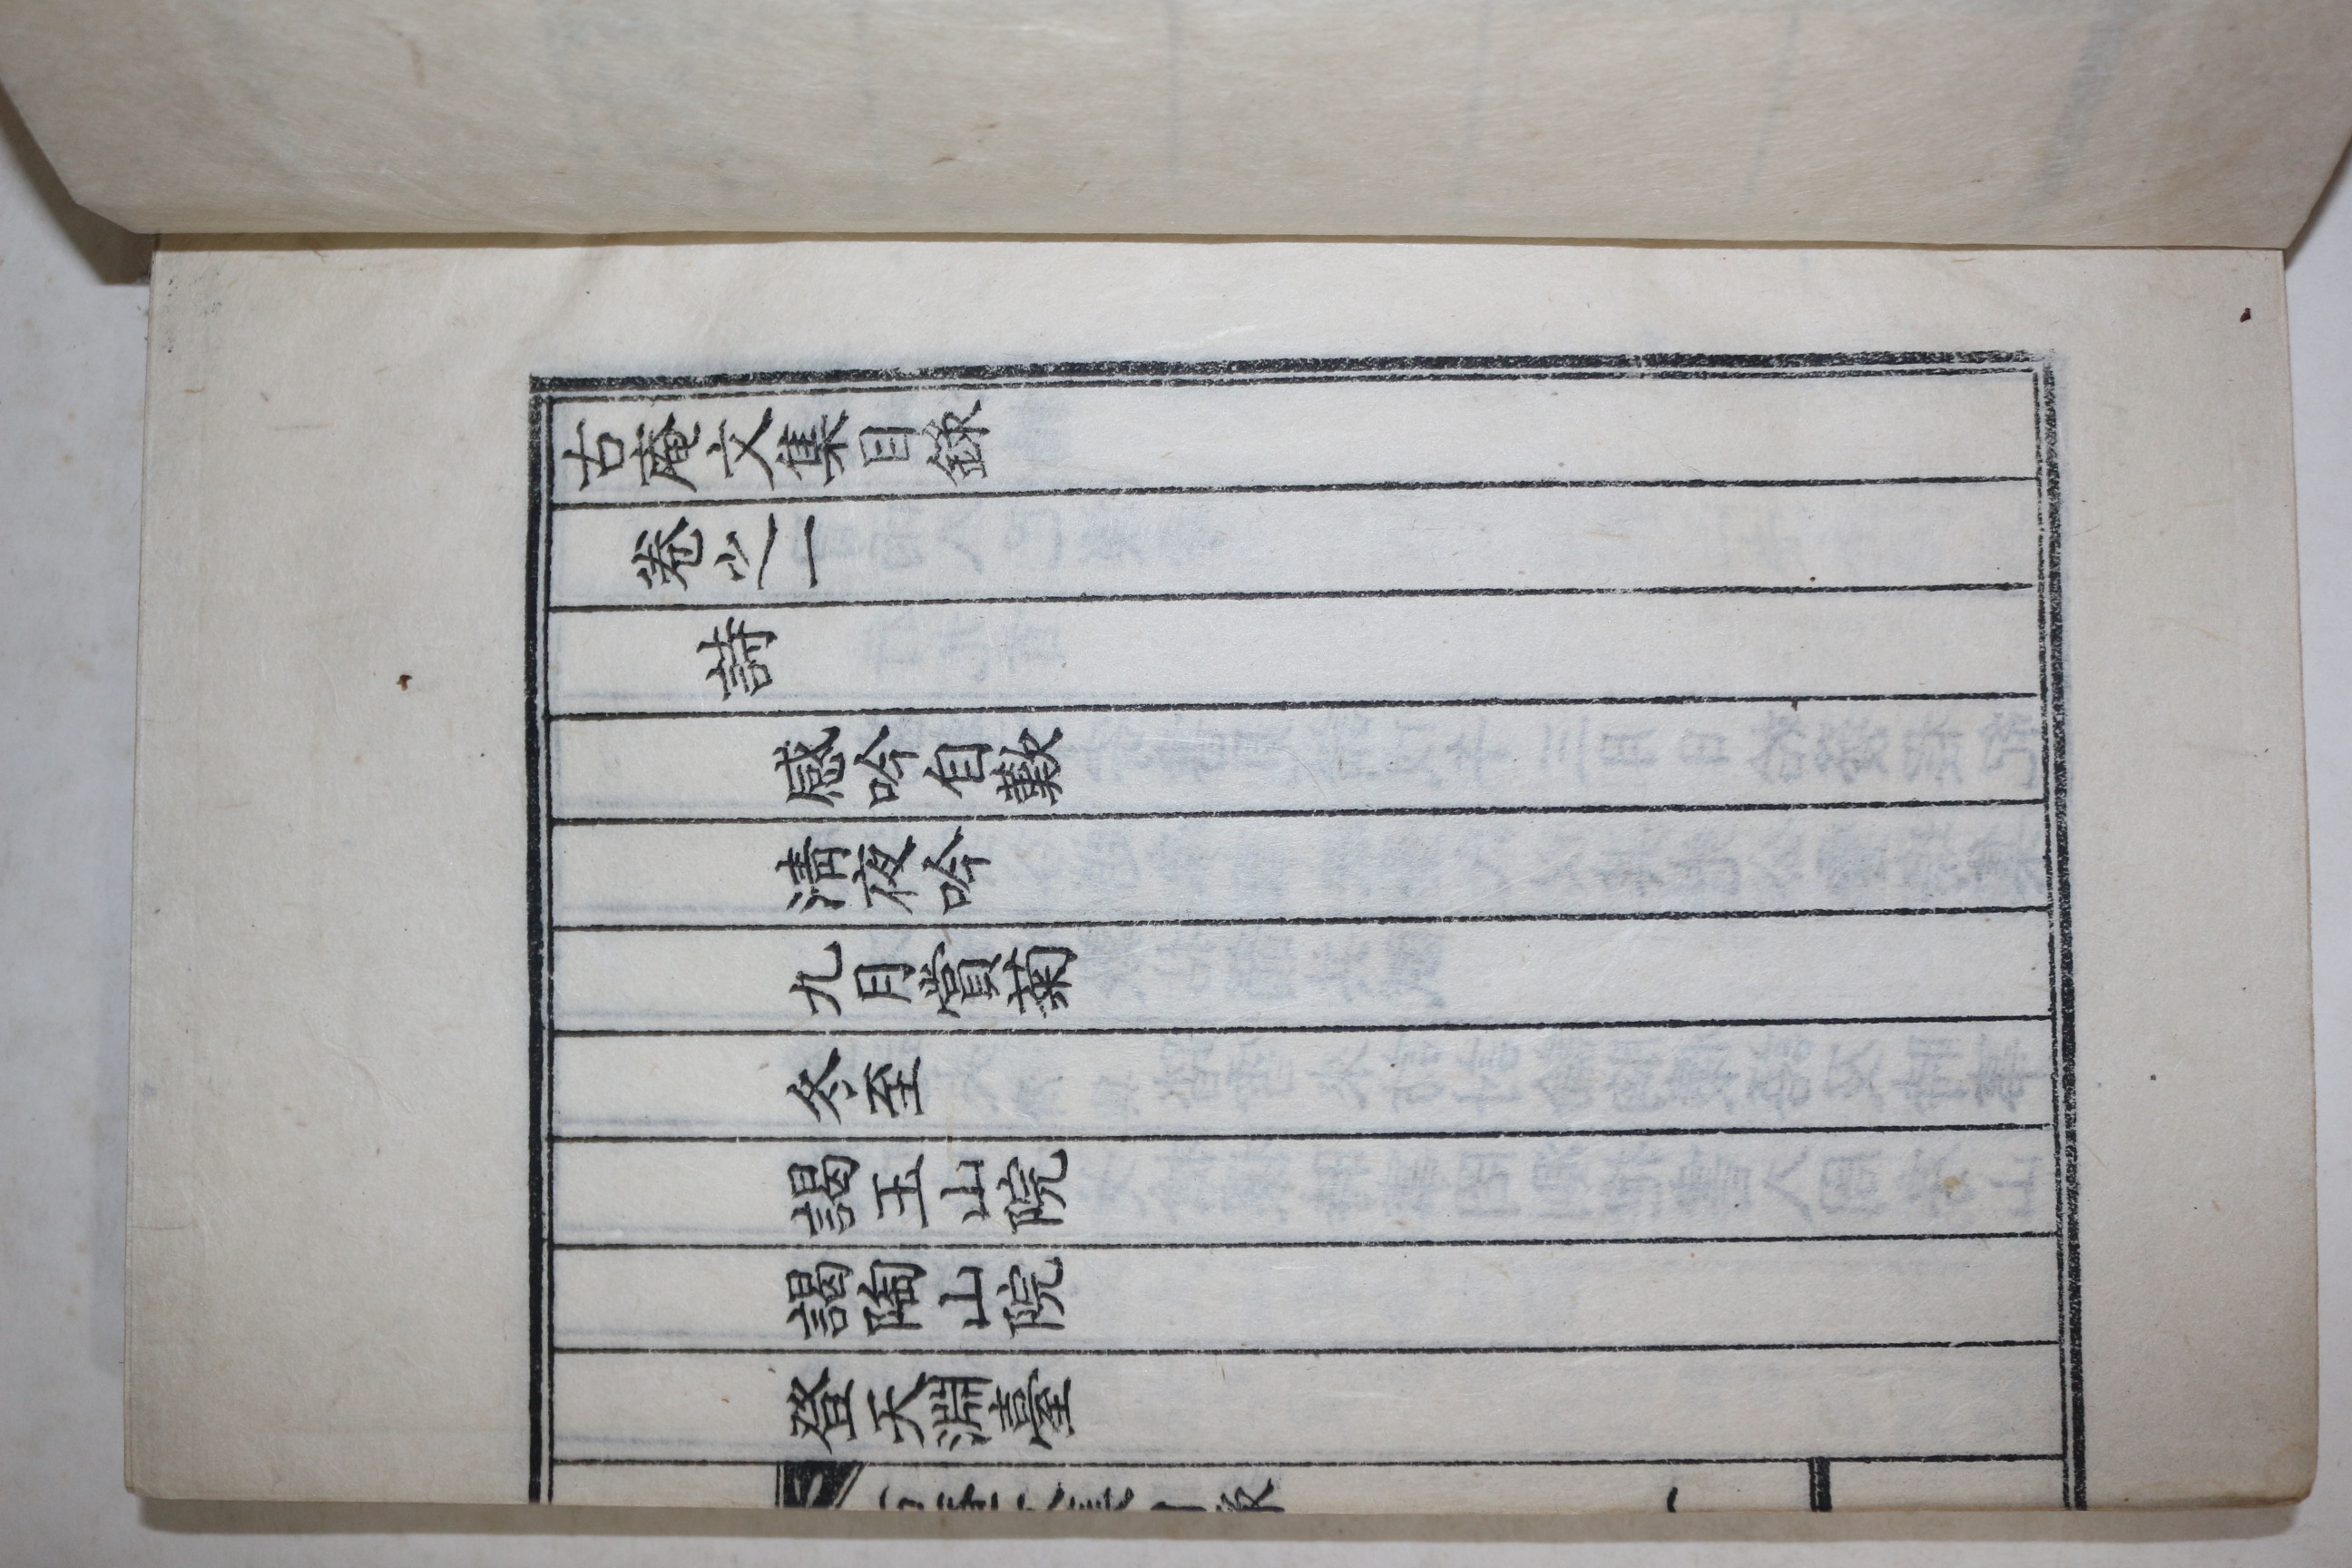 古庵文集目錄
卷之一
詩
感吟自歎
淸夜吟
九月賞菊
冬至
謁玉山院
謁陶山院
登天淵臺